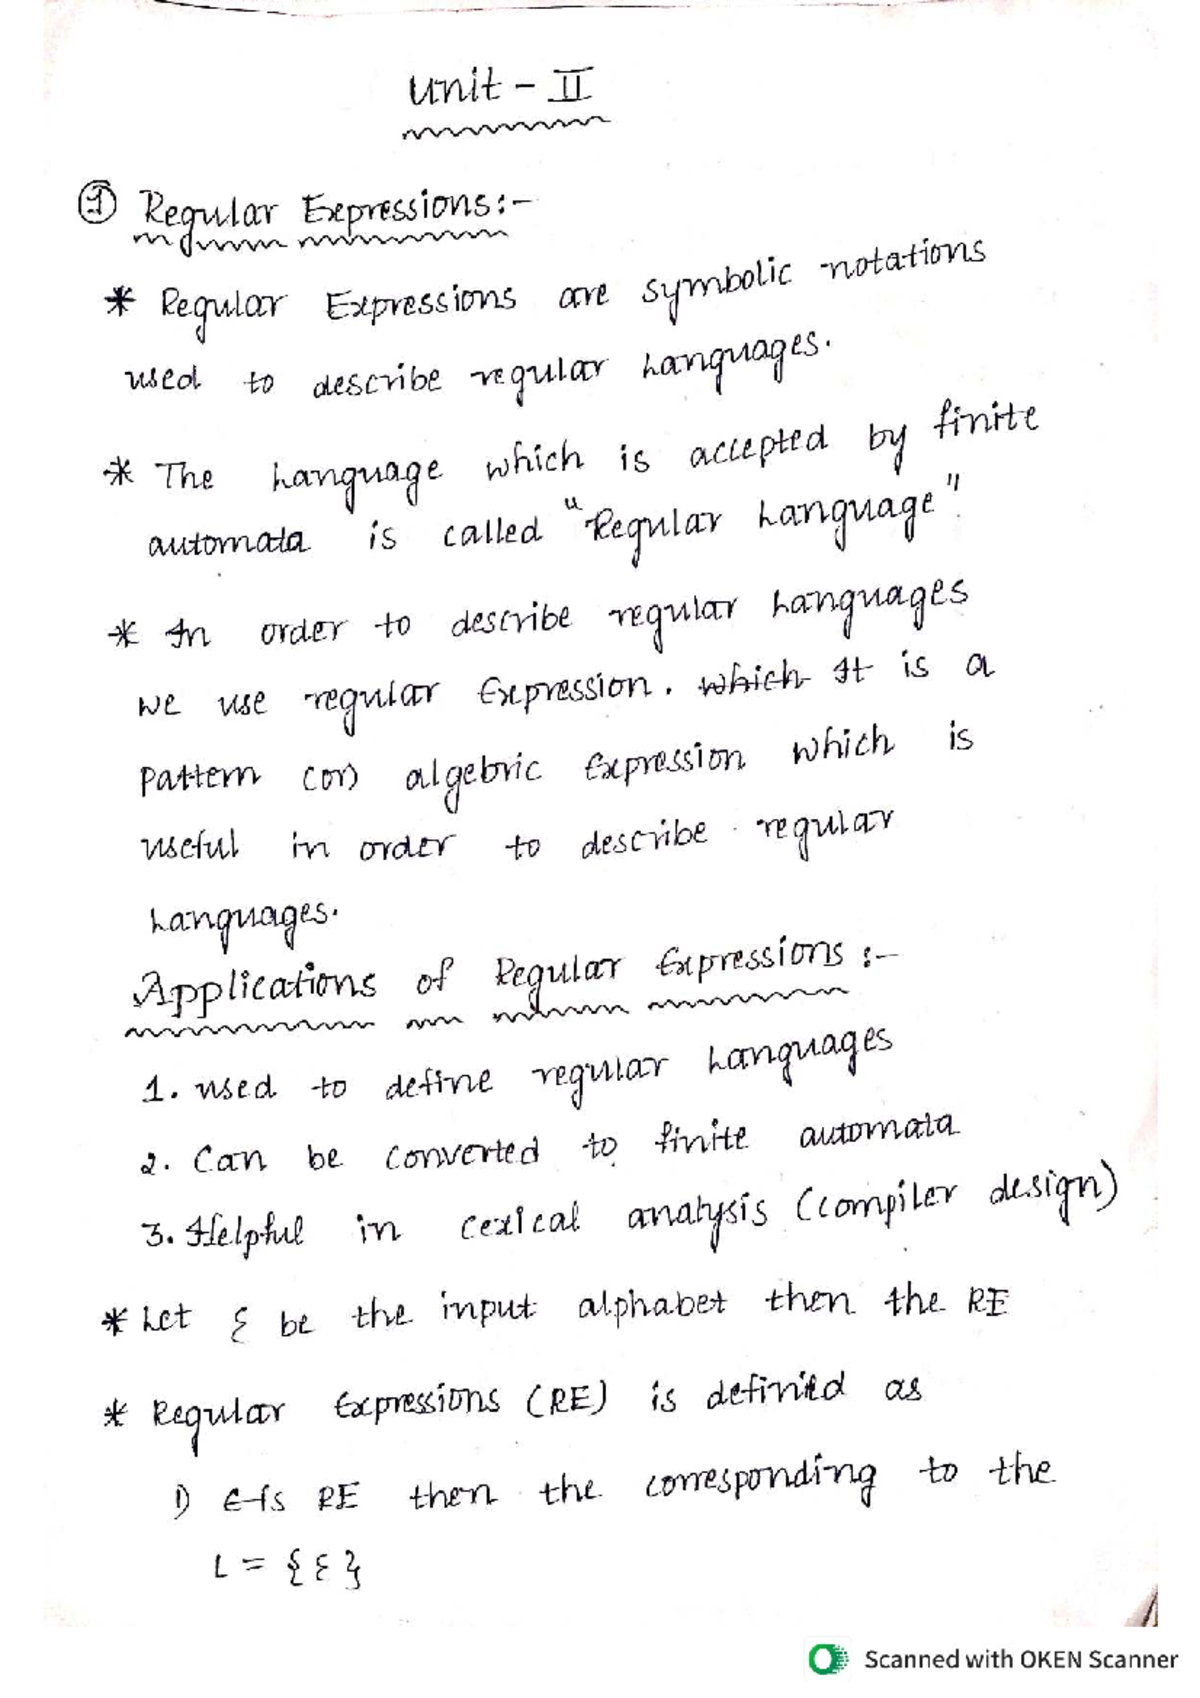 Unit - II
① Regular Expressions:-
* Regular Expressions are symbolic notations
used to describe regular Languages.
* The Language which is accepted by finite
automata is called "Regular Language".
* In order to describe regular Languages
we use regular Expression. which It is a
Pattern (or) algebric Expression which is
useful in order to describe regular
Languages.
Applications of Regular Expressions :-
1. used to define regular Languages
2. Can be converted to finite automata
3. Helpful in Lexical analysis (compiler design)
* Let Σ be the input alphabet then the RE
* Regular Expressions (RE) is defined as
1) ε is RE then the corresponding to the
L = {ε}
Scanned with OKEN Scanner